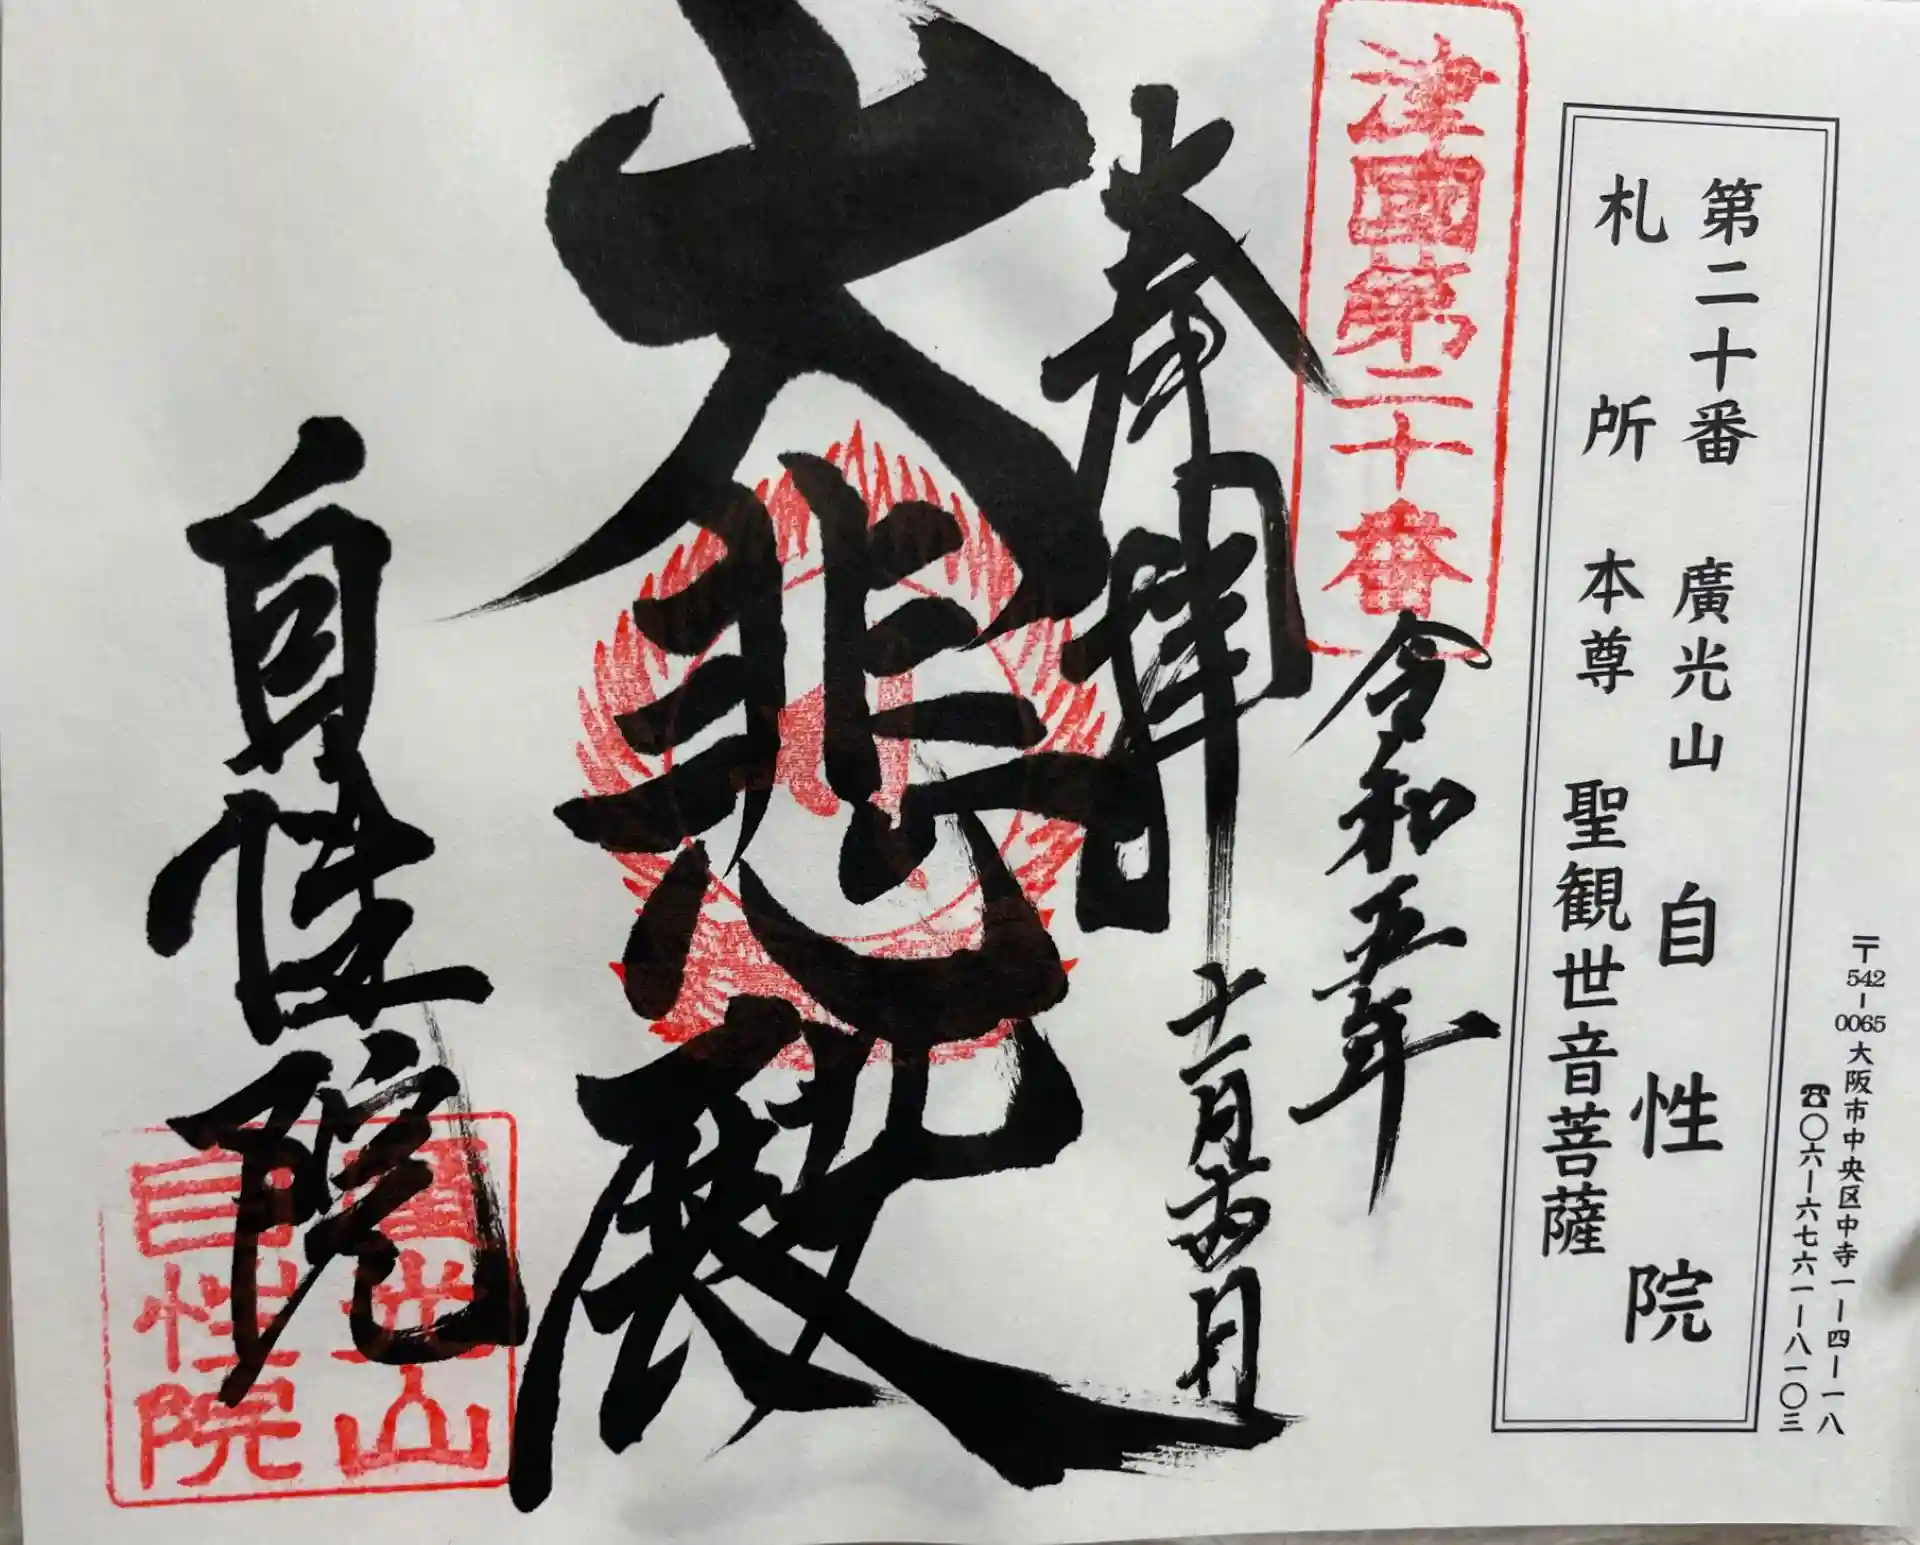 〒542-0065 大阪市中央区中寺一ー四ー一八
☎〇六ー六七六一ー八一〇三
第二十番 廣光山 自性院
札所 本尊 聖観世音菩薩
津國第二十番
令和五年
奉拝
十一月
大悲殿
自性院
廣光山
自性院